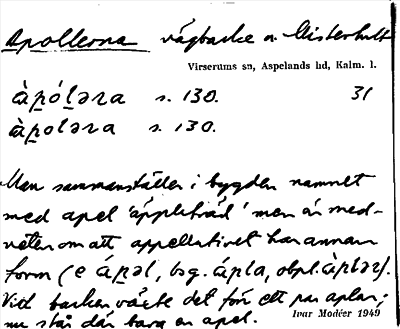 Apollerna vägbacke n. Misterhult
Virserums sn, Aspelands hd, Kalm. l.
àpólǝra s. 130. 31
àpolǝra s. 130.
Man sammanställer i bygden namnet
med apel 'äppleträd' men är med-
veten om att appellativet har annan
form (e ápǝl, bsg. ápla, obpl. àplǝr).
Vid backen växte det förr ett par aplar;
nu står där bara en apel.
Ivar Modéer 1949